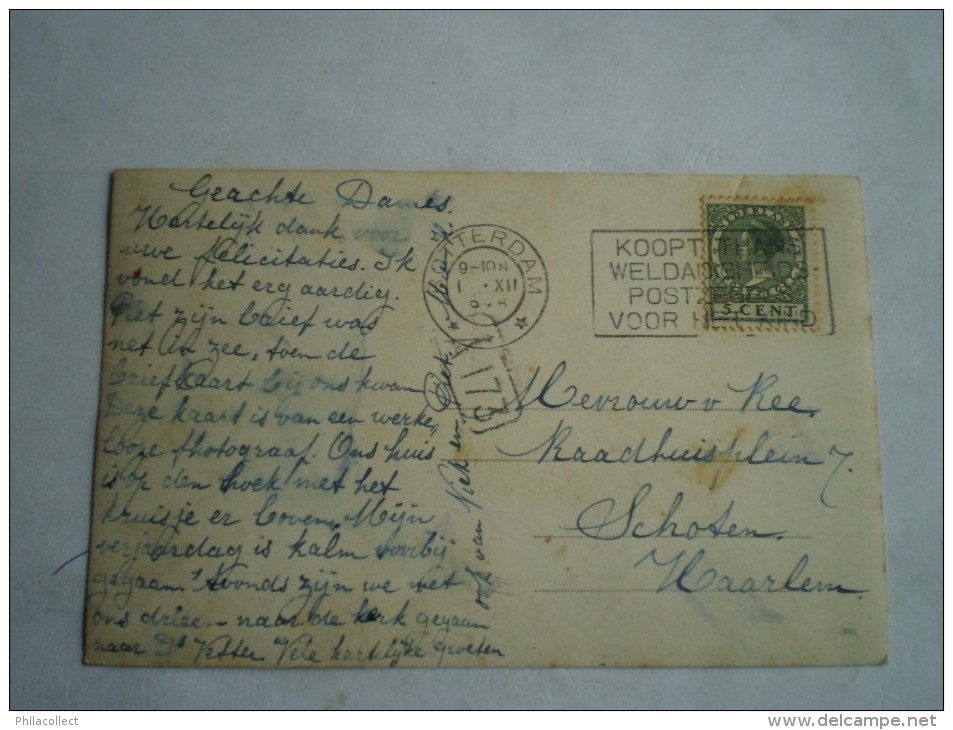 Geachte Dames.
Hartelijk dank voor
uwe felicitaties. Ik
vond het erg aardig.
Piet zijn brief was
net in zee, toen de
briefkaart bij ons kwam
Deze kaart is van een werke„
looze photograaf. Ons huis
is op den hoek met het
kruisje er boven. Mijn
verjaardag is kalm voorbij
gegaan. 's Avonds zijn we met
ons drieen naar de kerk gegaan
naar Ds Vetter. Vele hartelijke groeten
ook van Niek en Piet.
ROTTERDAM
9-10N
1 XII
KOOPT THANS
WELDADIGHEIDS
POSTZEGELS
VOOR HET KIND
NEDERLAND
5 CENT
Mevrouw v Ree.
Raadhuisplein 7.
Schoten.
Haarlem.
Philacollect
delcampe.net